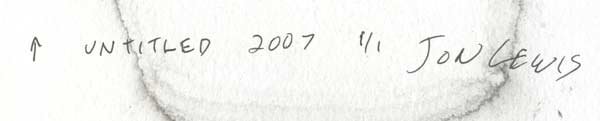 ↑ UNTITLED 2007 1/1 JON LEWIS